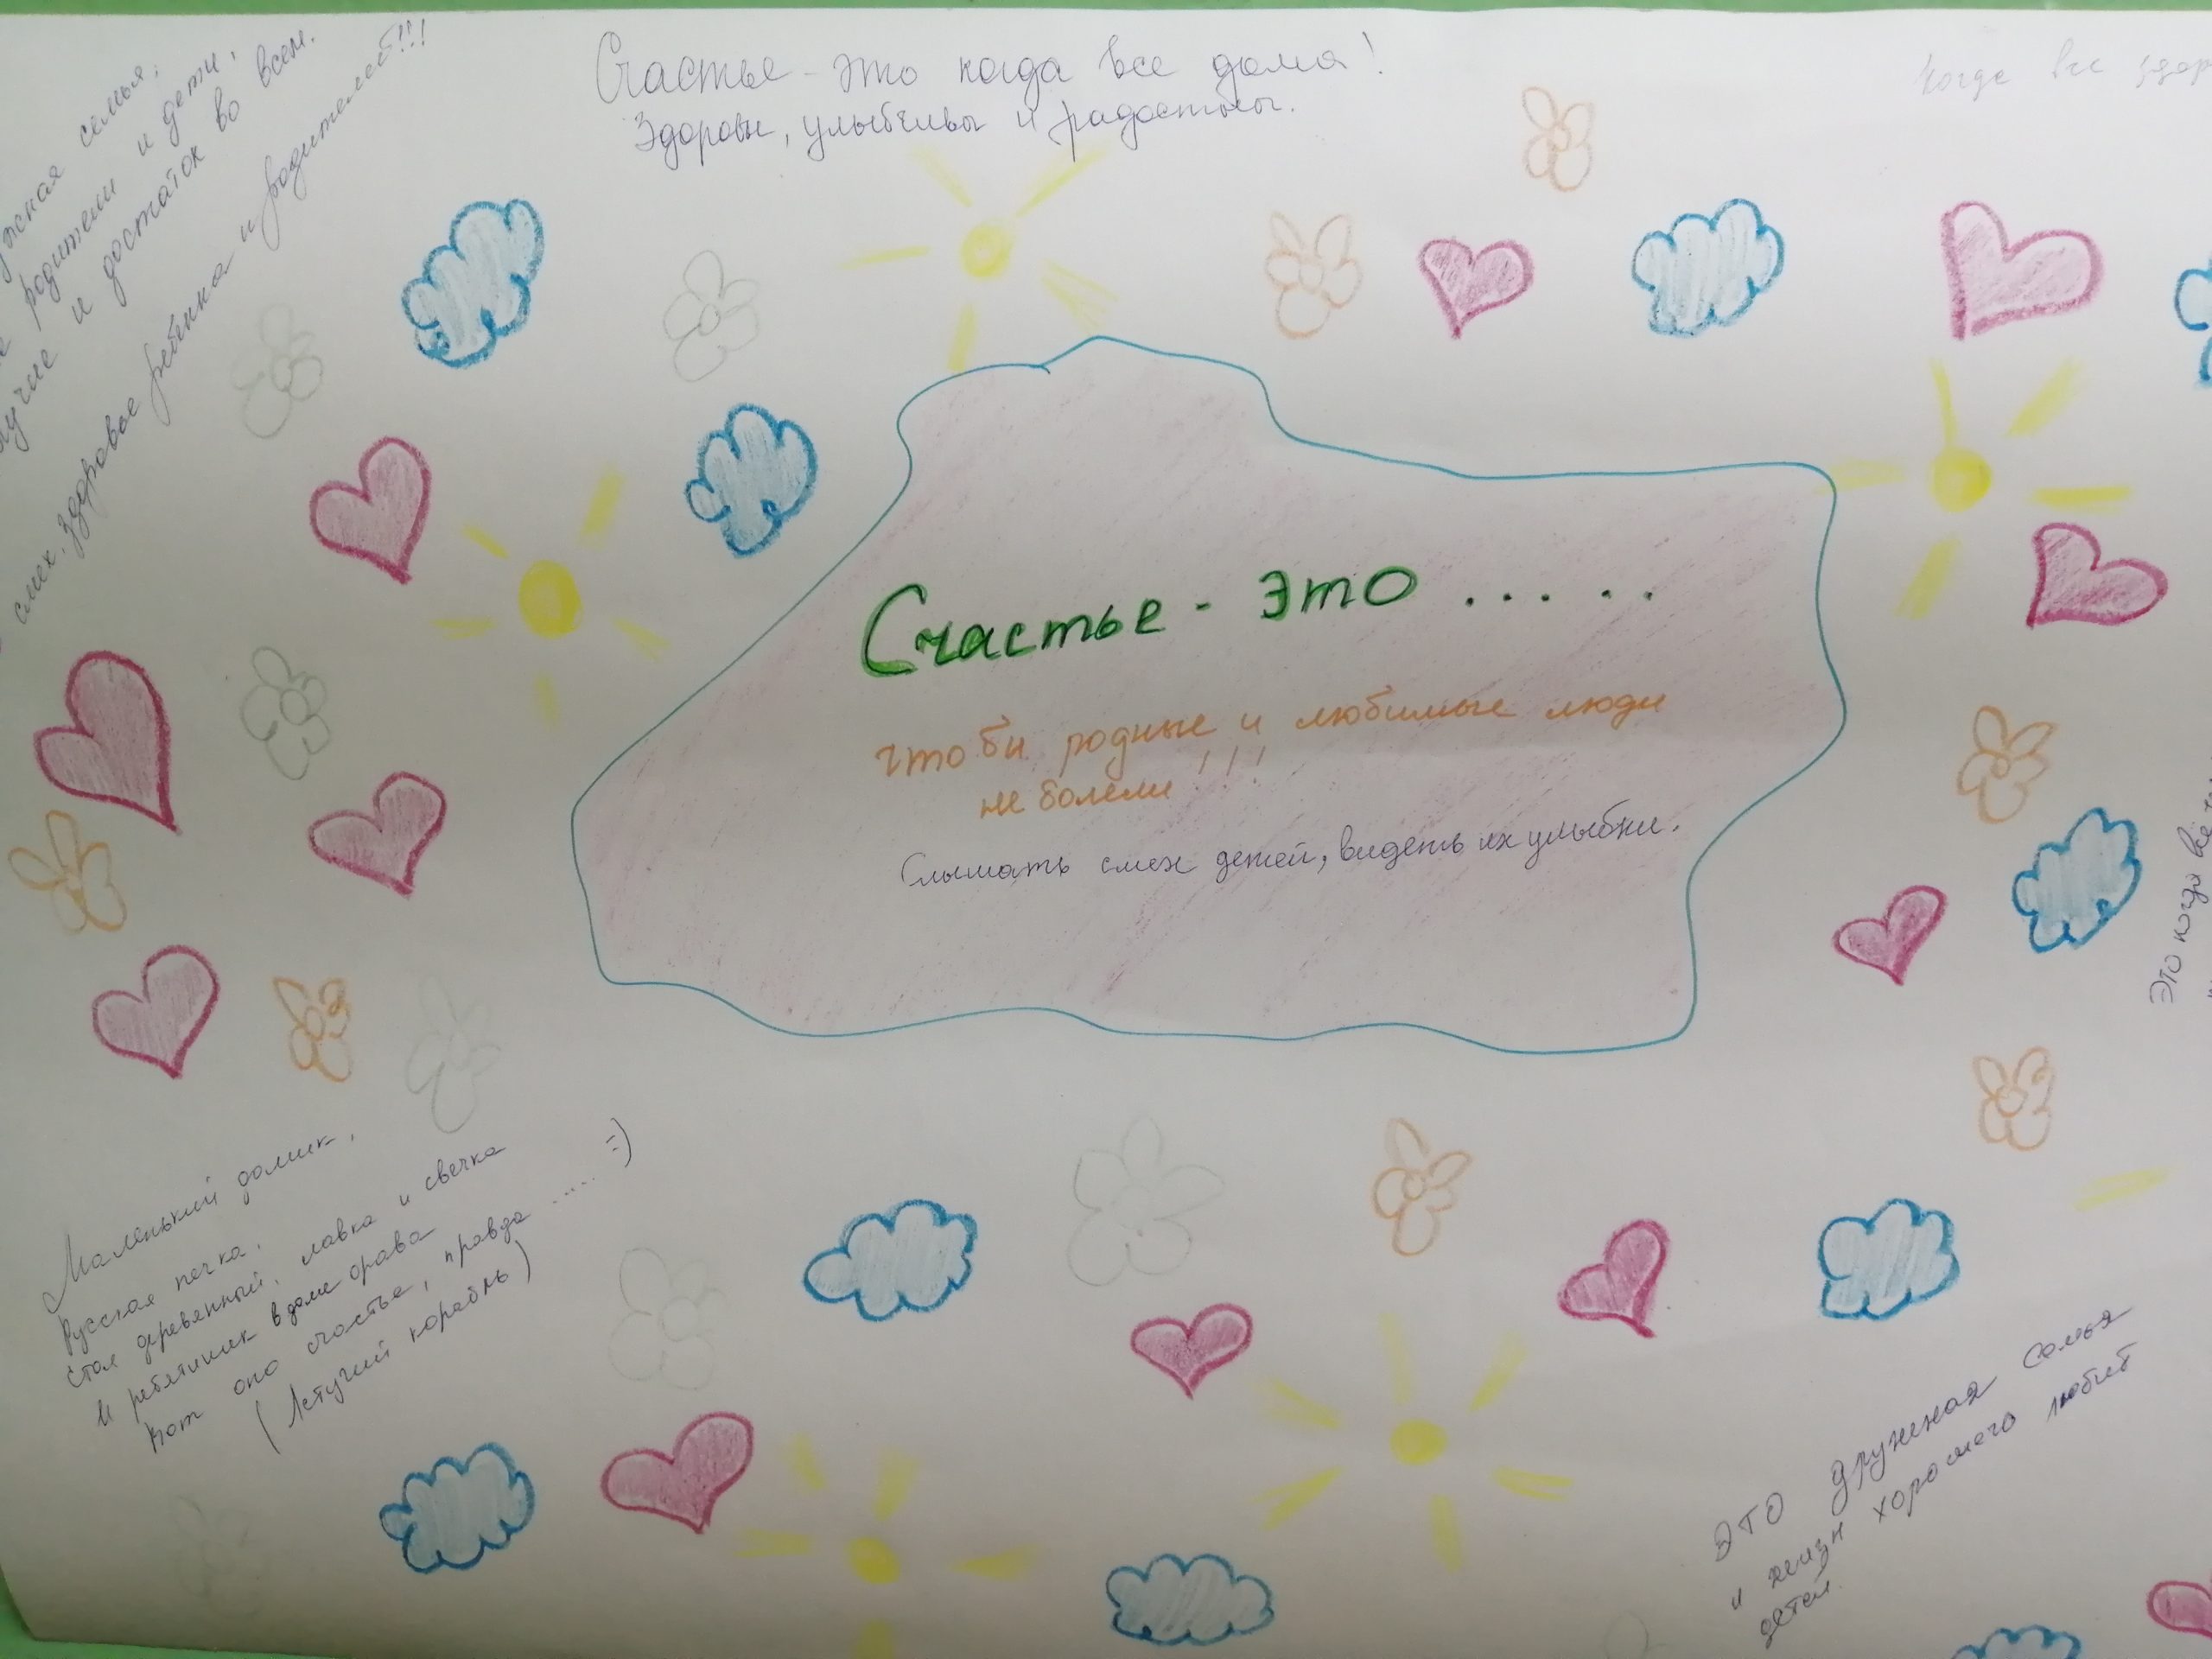 Счастье - это когда все дома!
Здоровы, улыбчивы и радостны.
Когда все
семья,
родители и дети,
и достаток во всем.
смех, здоровье ребенка и родителей!!!
Счастье - это .....
чтобы родные и любимые люди
не болели!!!
Слышать смех детей, видеть их улыбки.
Это когда все
Маленький домик,
Русская печка,
Стол деревянный, лавка и свечка
И ребятишек в доме орава
Вот оно счастье, правда ..... =)
(Летучий корабль)
Это дружная семья
и хорошего любит
детей.